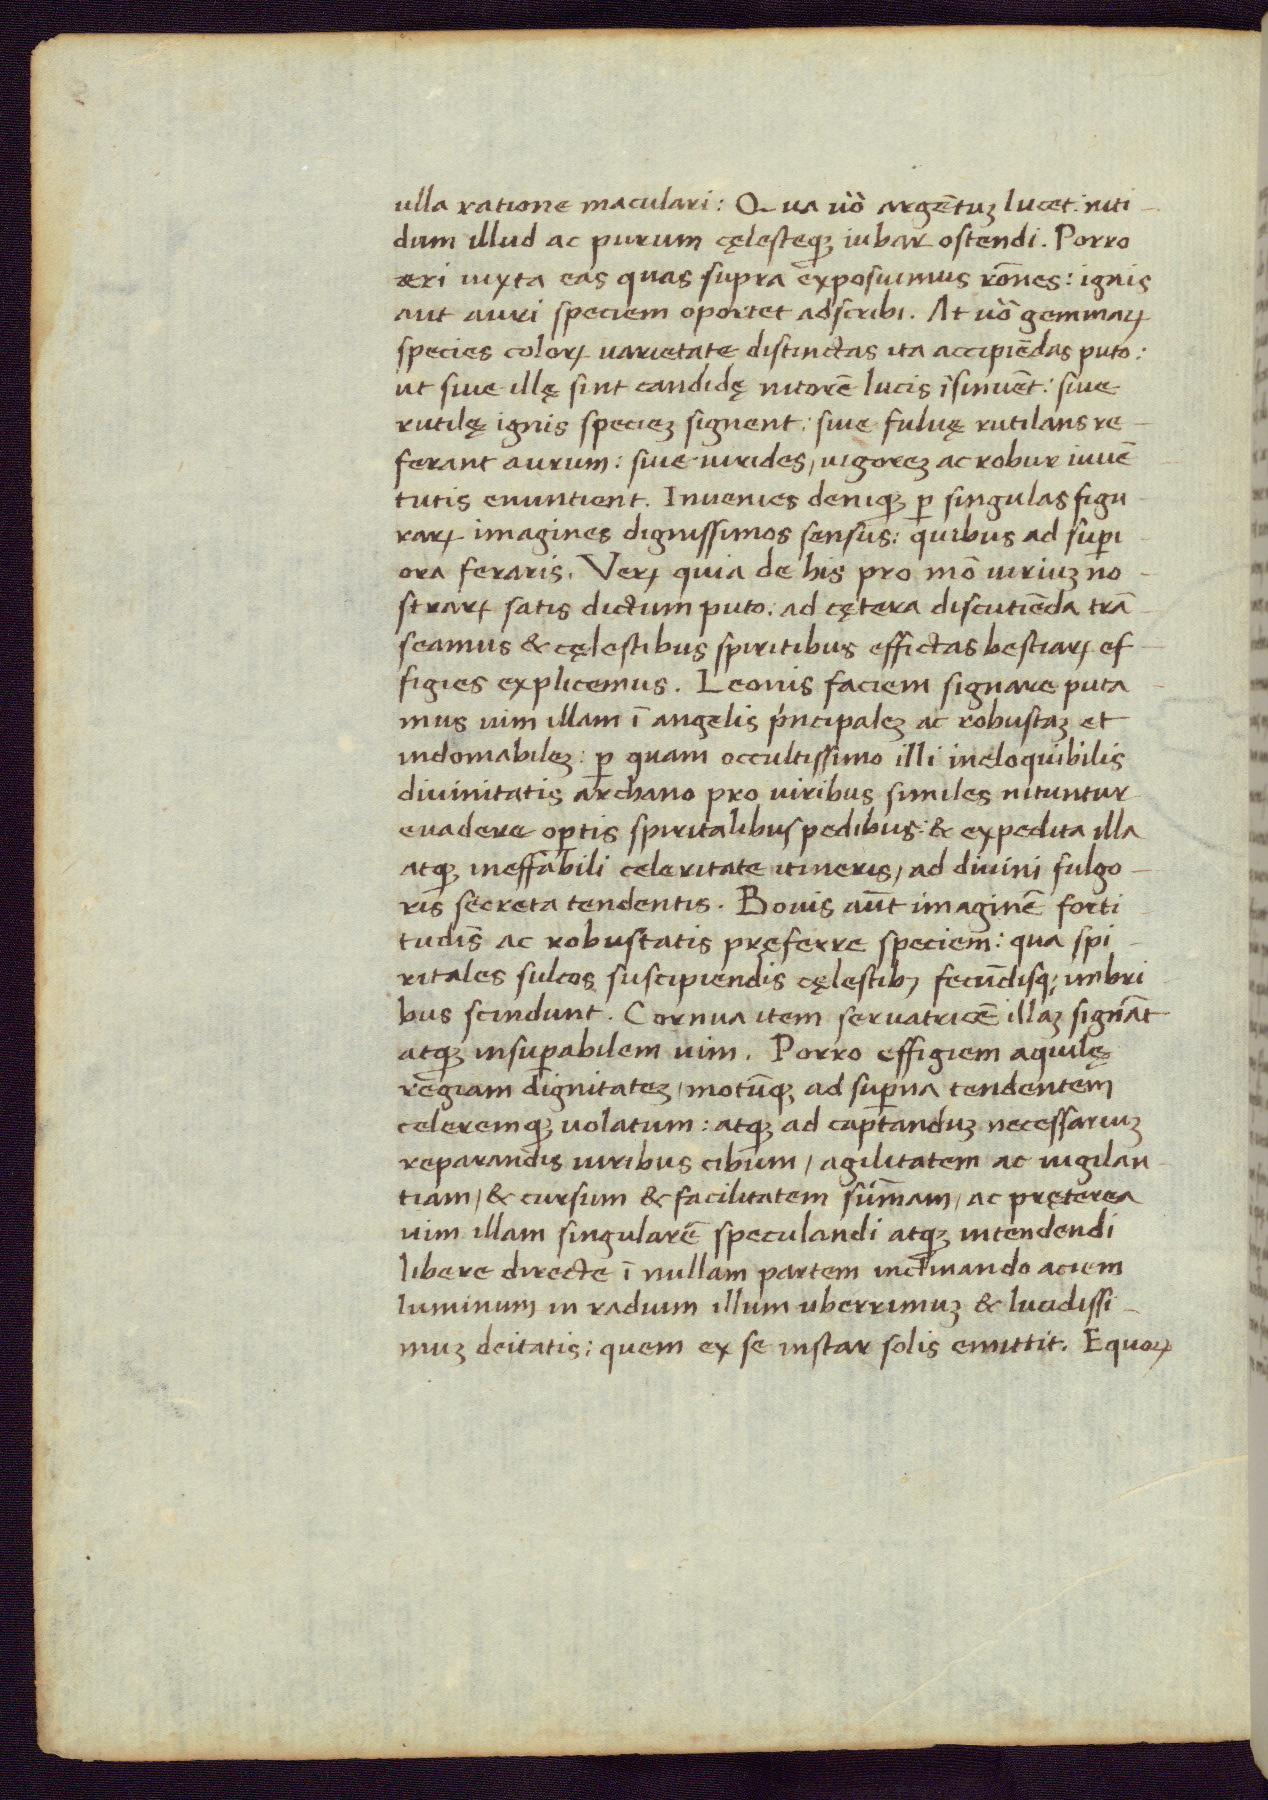 ulla ratione maculari: Qua uo᷑ argētuꝫ lucet: niti-
dum illud ac purum cęlesteqꝫ iubar ostendi. Porro
æri iuxta eas quas supra exposuimus rōnes: ignis
aut auri speciem oportet adscribi. At uo᷑ gemmaꝝ
species coloꝝ uarietate distinctas ita accipiēdas puto:
ut siue illę sint candidę nitorē lucis īsinuēt: siue
rutilę ignis specieꝫ signent: siue fuluę rutilans re-
ferant aurum: siue uirides, uigoreꝫ ac robur iuuē
tutis enuntient. Inuenies deniqꝫ ꝑ singulas figu-
raꝝ imagines dignissimos sensus: quibus ad suꝑi-
ora feraris. Veꝝ quia de his pro mō uiriuꝫ no-
straꝝ satis dictum puto: ad cętera discutiēda trā-
seamus & cęlestibus spiritibus effictas bestiaꝝ ef-
figies explicemus. Leonis faciem signare puta-
mus uim illam ī angelis pͥncipaleꝫ ac robustaꝫ et
indomabileꝫ: ꝑ quam occultissimo illi ineloquibilis
diuinitatis archano pro uiribus similes nituntur
euadere oꝑtis spiritalibus pedibus: & expedita illa
atqꝫ ineffabili celeritate itineris, ad diuini fulgo-
ris secreta tendentis. Bouis aūt imaginē forti-
tudīs ac robustatis pręferre speciem: qua spi-
ritales sulcos suscipiendis cęlestibꝫ fecūdisqꝫ imbri
bus scindunt. Cornua item seruatricē illaꝫ signāt
atqꝫ insuꝑabilem uim. Porro effigiem aquilę
regiam dignitateꝫ, motūqꝫ ad suꝑna tendentem
celeremqꝫ uolatum: atqꝫ ad captanduꝫ necessariuꝫ
reparandis uiribus cibum, agilitatem ac uigilan-
tiam, & cursum & facilitatem sūmam, ac pręterea
uim illam singularē speculandi atqꝫ intendendi
libere directe ī nullam partem inclinando aciem
luminum in radium illum uberrimuꝫ & lucidissi-
muꝫ deitatis: quem ex se instar solis emittit. Equoꝝ